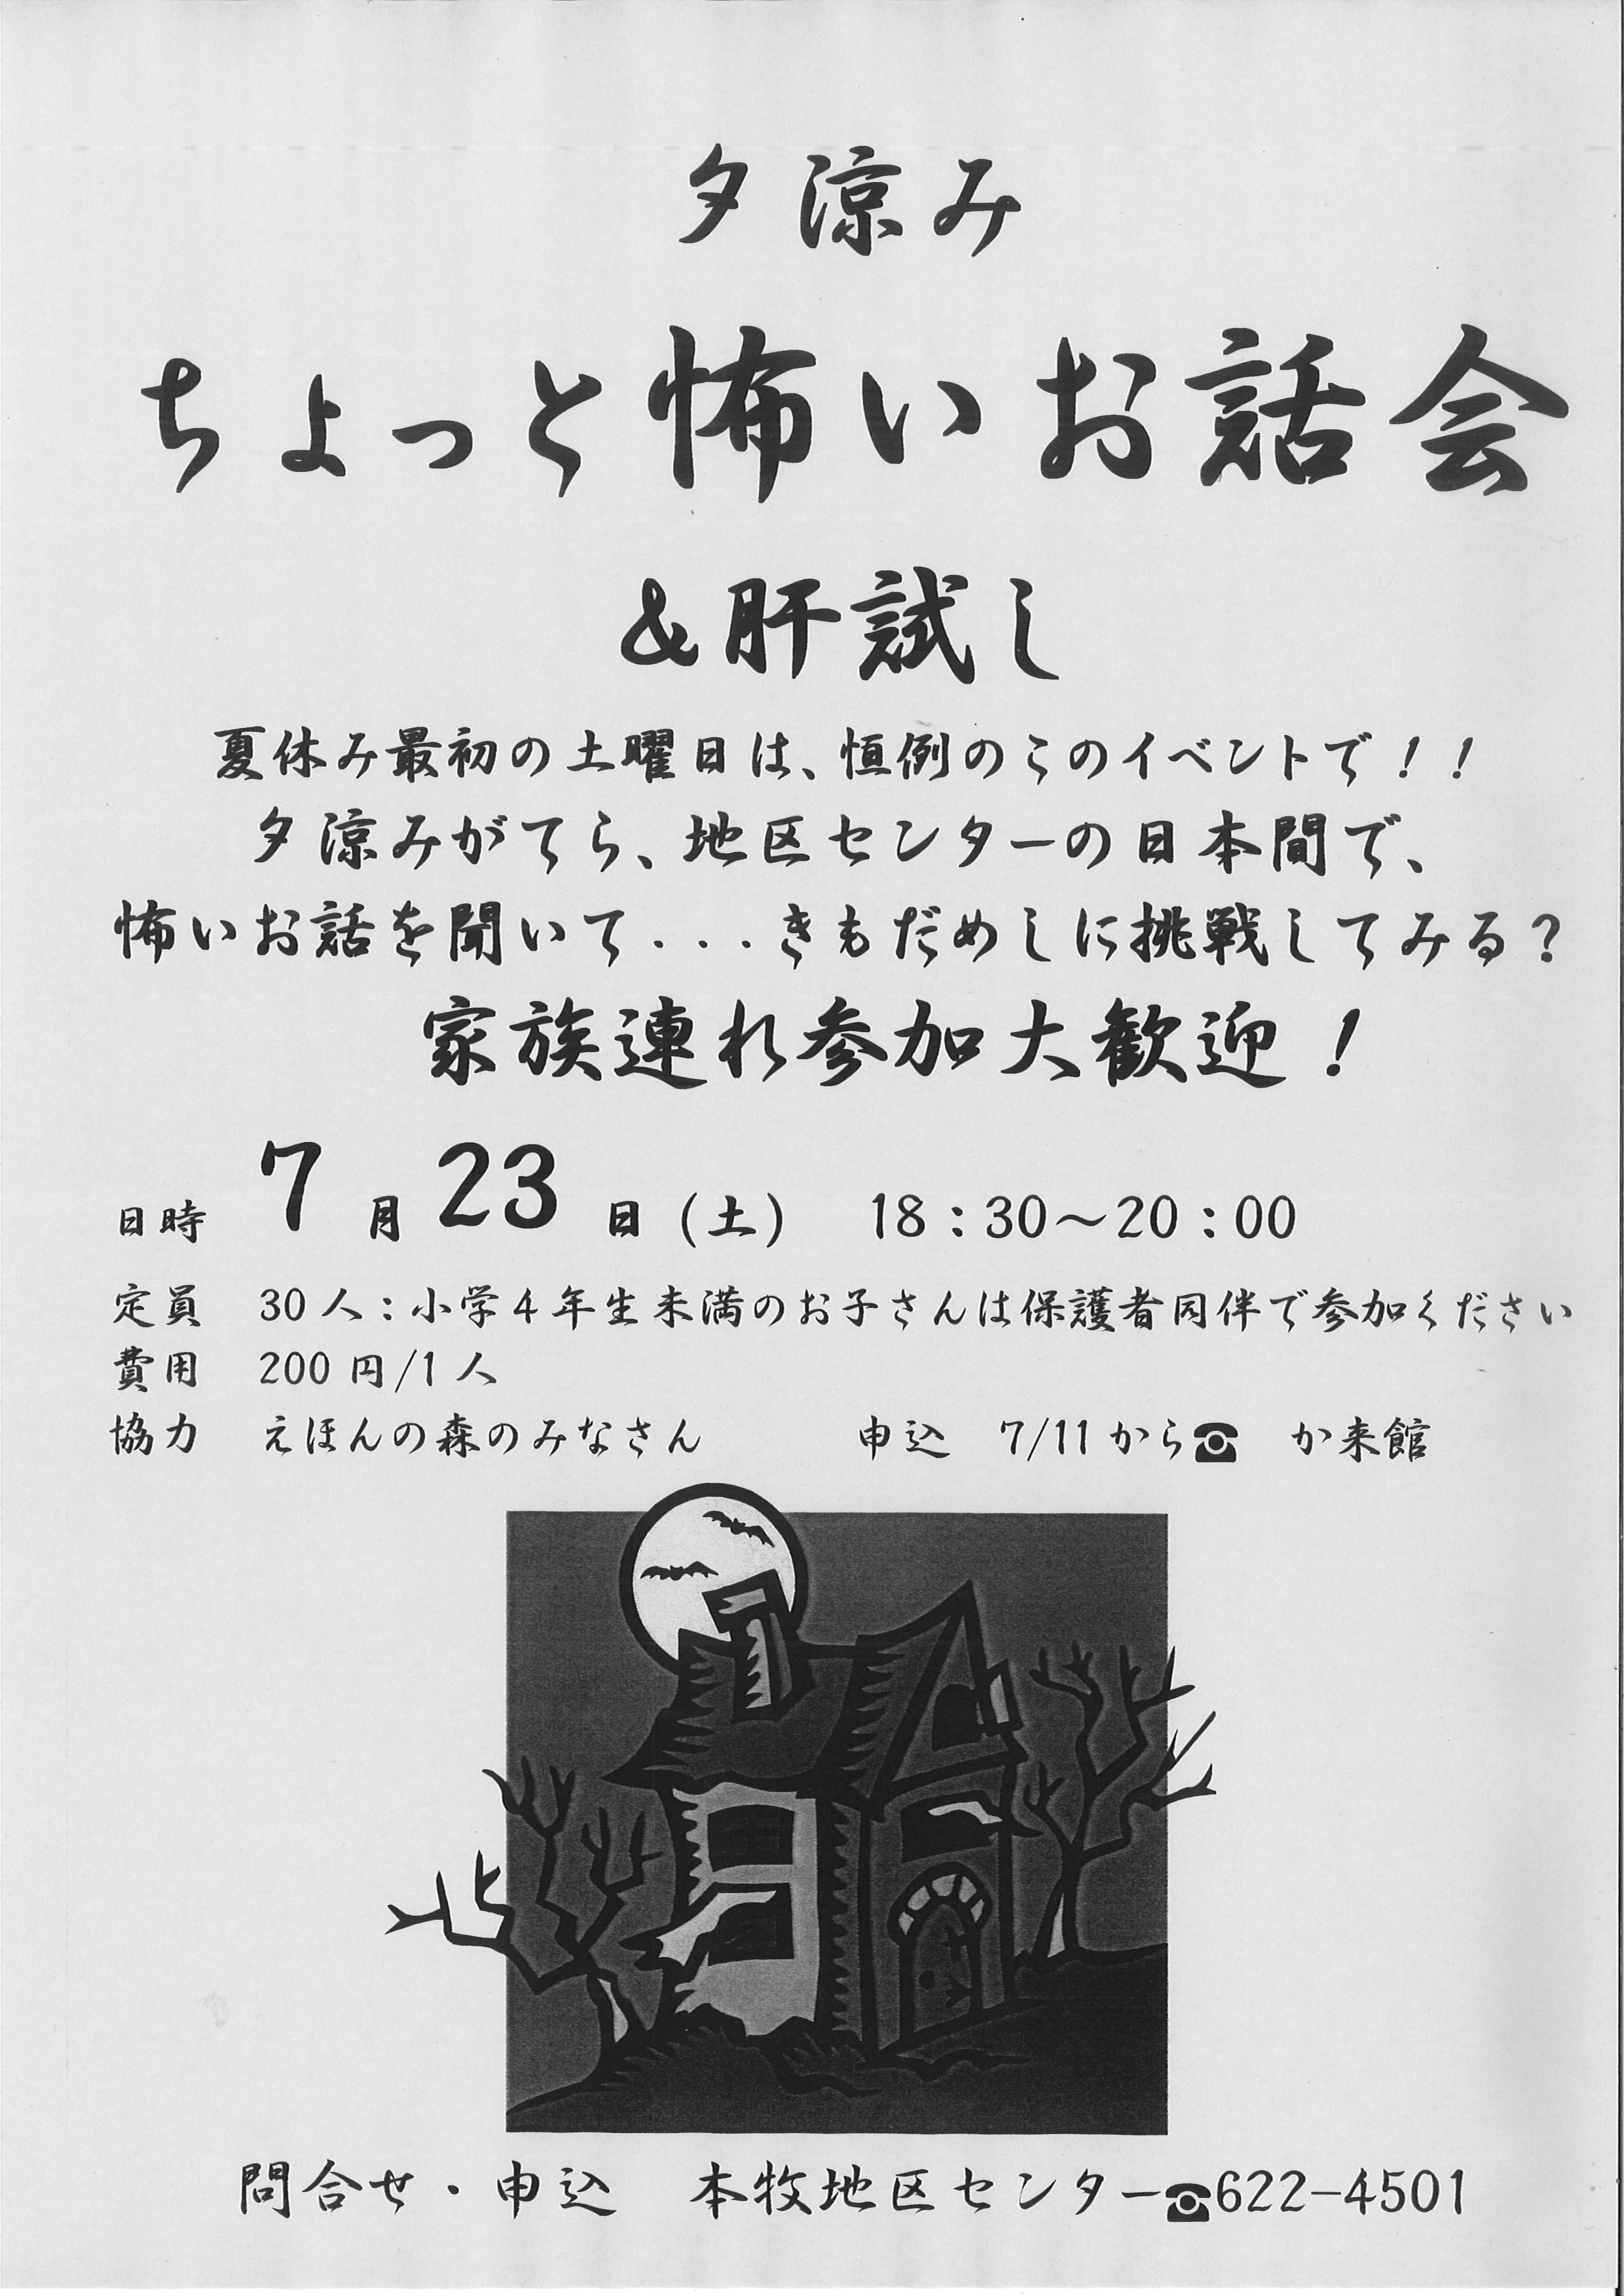 夕涼み
ちょっと怖いお話会
&肝試し
夏休み最初の土曜日は、恒例のこのイベントで！！
夕涼みがてら、地区センターの日本間で、
怖いお話を聞いて...きもだめしに挑戦してみる？
家族連れ参加大歓迎！
日時 7月23日（土） 18：30～20：00
定員 30人：小学4年生未満のお子さんは保護者同伴で参加ください
費用 200円/1人
協力 えほんの森のみなさん 申込 7/11から☎ か来館
問合せ・申込 本牧地区センター☎622-4501